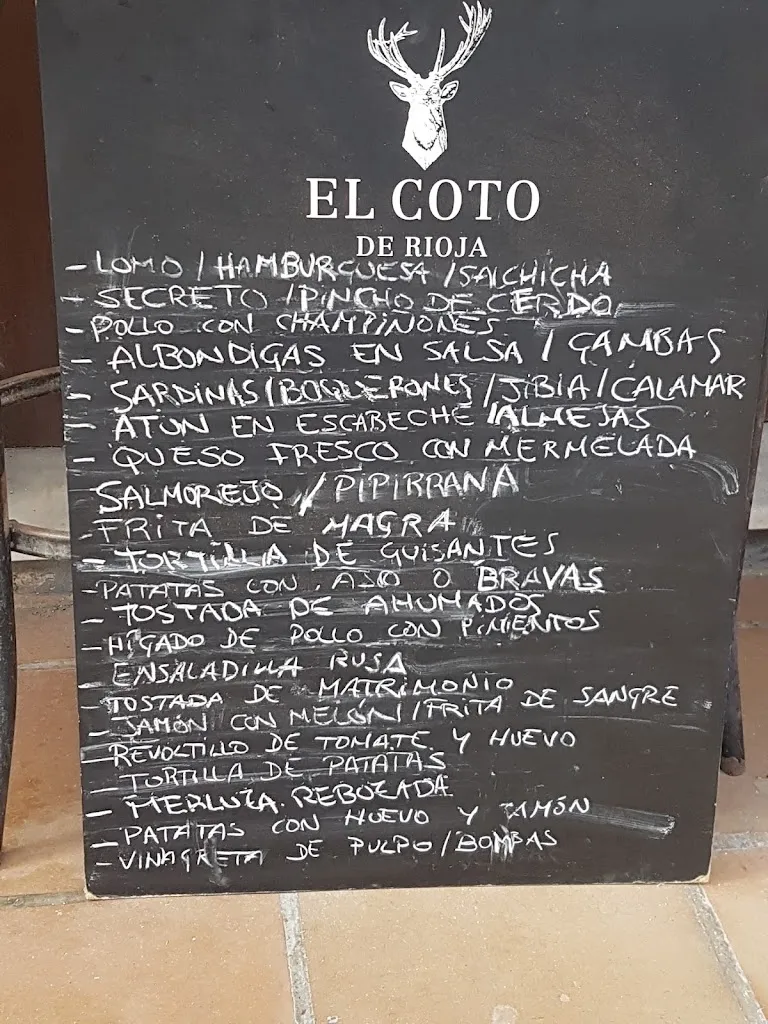 EL COTO
DE RIOJA
- LOMO / HAMBURGUESA / SALCHICHA
- SECRETO / PINCHO DE CERDO
- POLLO CON CHAMPIÑONES
- ALBONDIGAS EN SALSA / GAMBAS
- SARDINAS / BOQUERONES / JIBIA / CALAMAR
- ATUN EN ESCABECHE / ALMEJAS
- QUESO FRESCO CON MERMELADA
SALMOREJO / PIPIRRANA
- FRITA DE MAGRA
- TORTILLA DE GUISANTES
- PATATAS CON AJO O BRAVAS
- TOSTADA DE AHUMADOS
- HÍGADO DE POLLO CON PIMIENTOS
ENSALADILLA RUSA
- TOSTADA DE MATRIMONIO
- JAMÓN CON MELÓN / FRITA DE SANGRE
- REVOLTILLO DE TOMATE Y HUEVO
- TORTILLA DE PATATAS
- MERLUZA REBOZADA
- PATATAS CON HUEVO Y JAMÓN
- VINAGRETA DE PULPO / BOMBAS